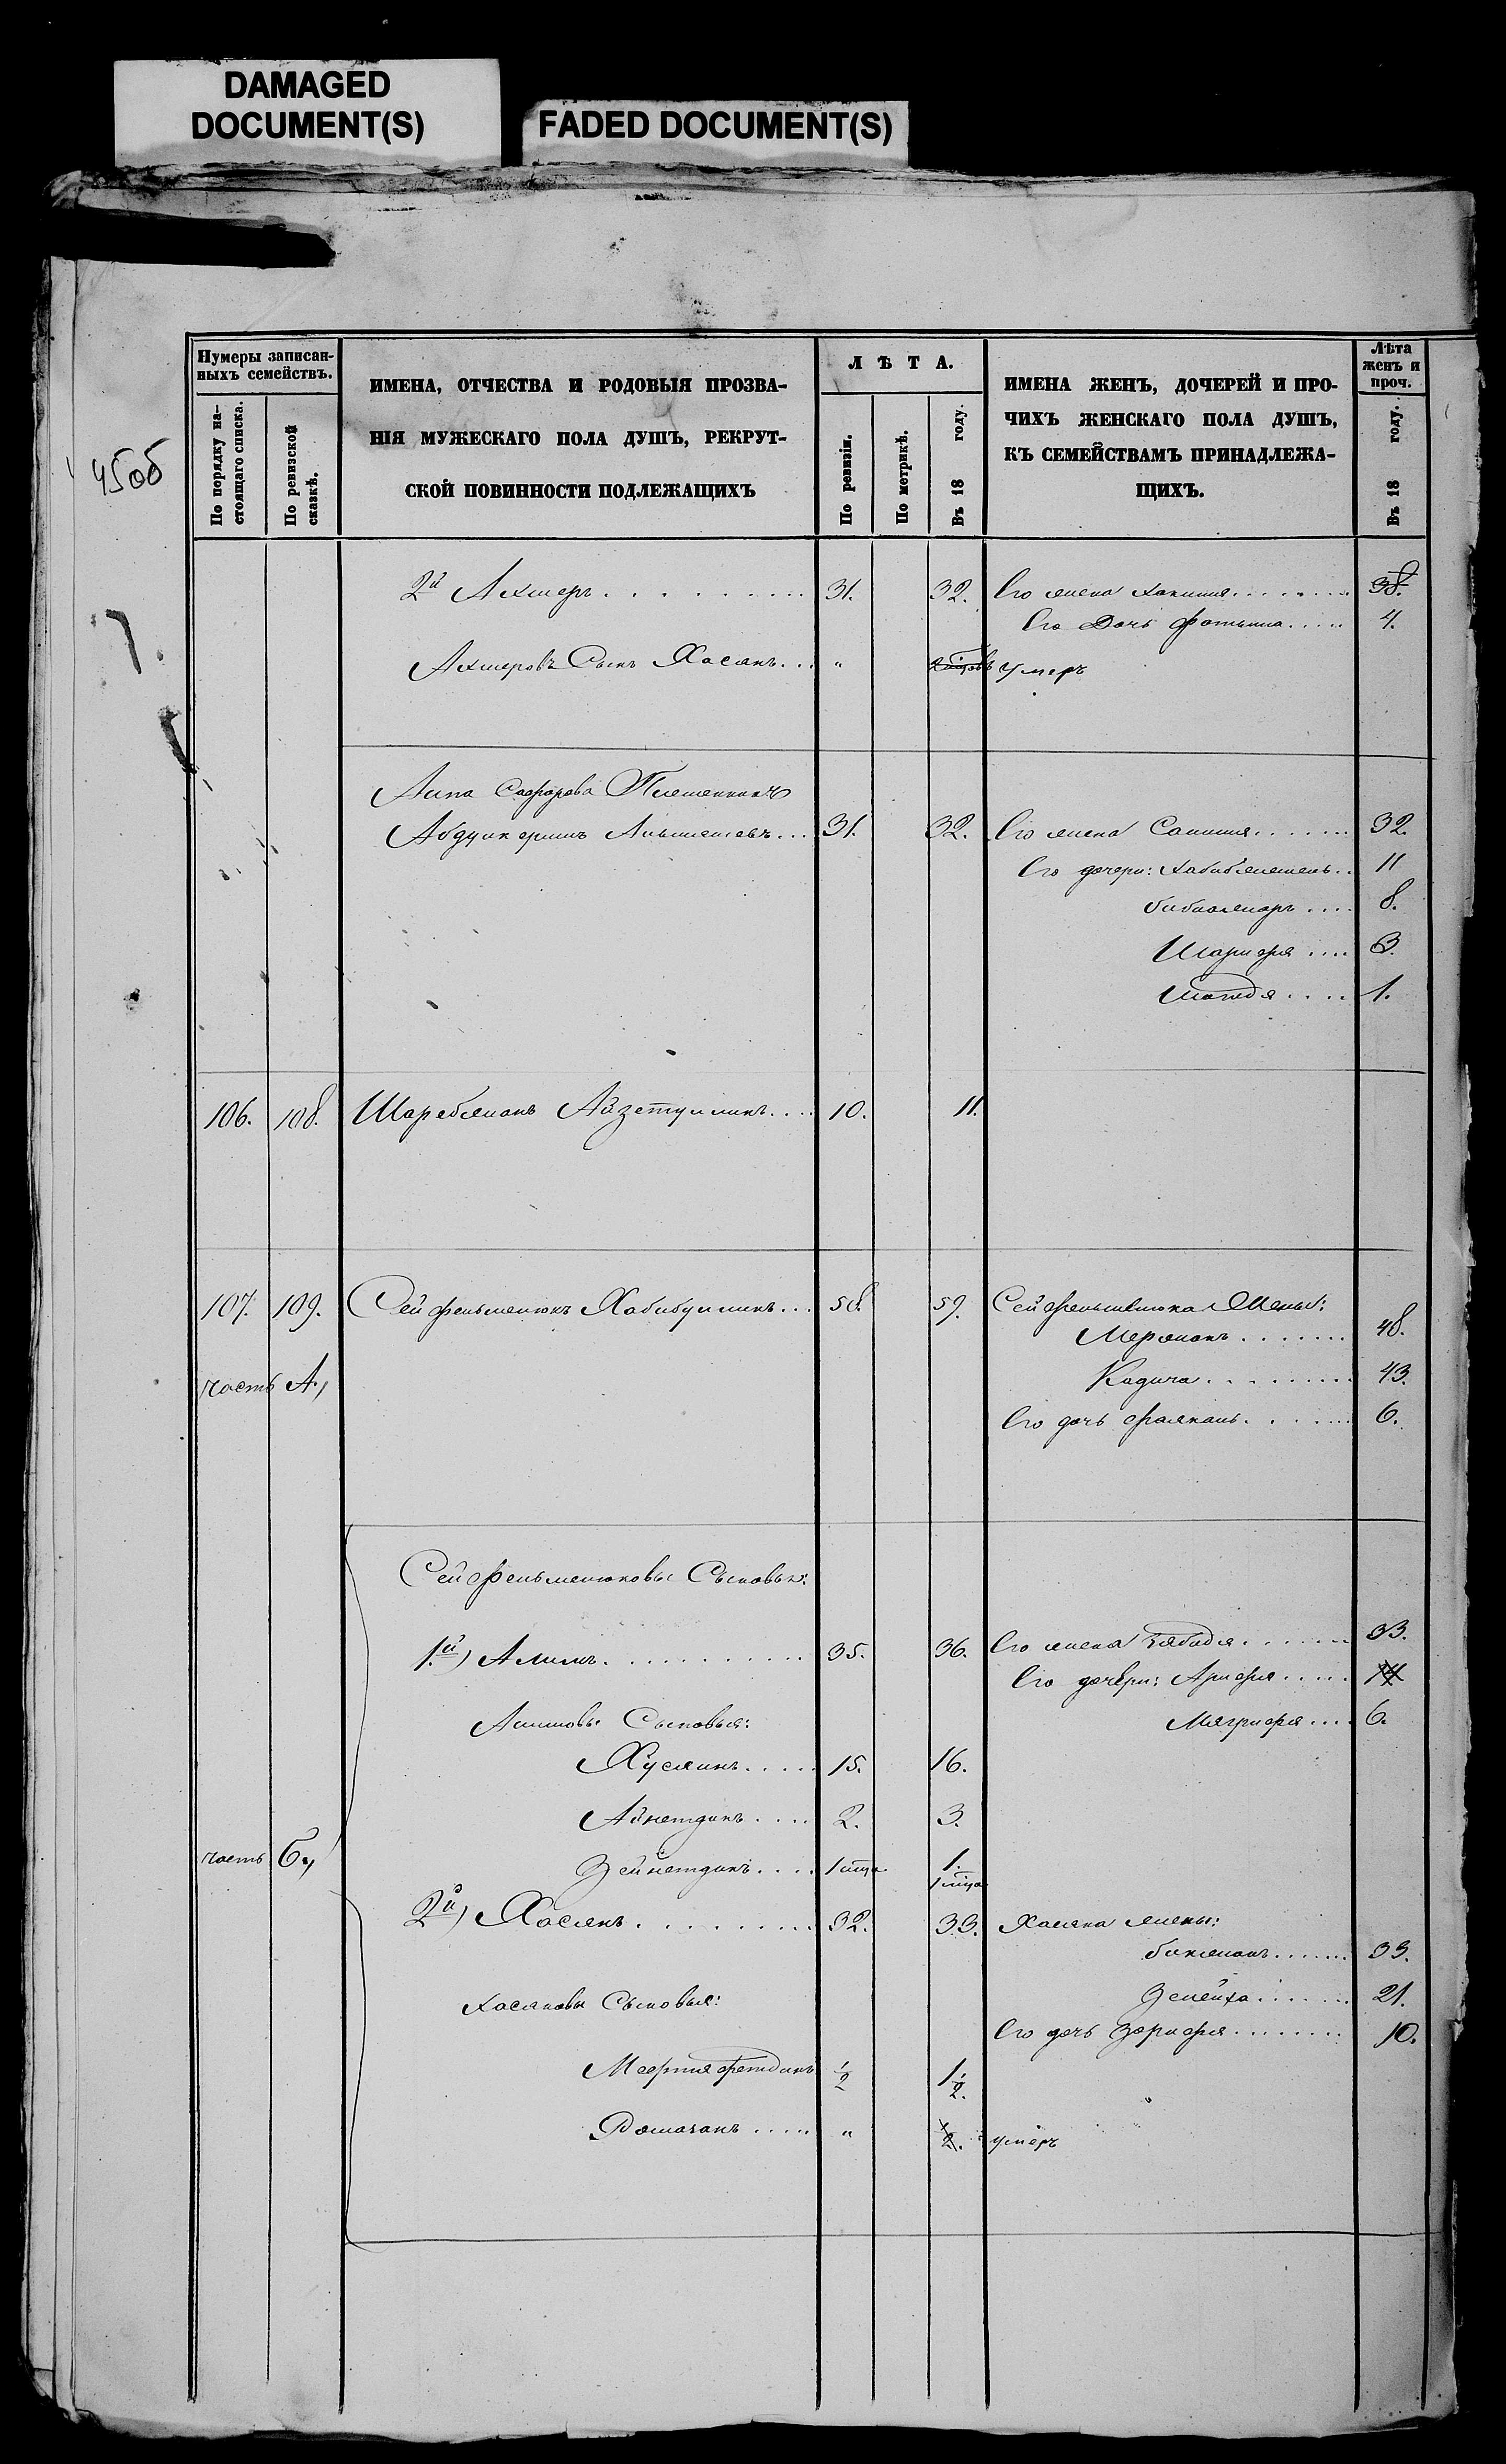 DAMAGED
DOCUMENT(S)
FADED DOCUMENT(S)
45об
Нумеры записан-
ныхъ семействъ.
По порядку на-
стоящаго списка.
По ревизской
сказкѣ.
ИМЕНА, ОТЧЕСТВА И РОДОВЫЯ ПРОЗВА-
НІЯ МУЖЕСКАГО ПОЛА ДУШЪ, РЕКРУТ-
СКОЙ ПОВИННОСТИ ПОДЛЕЖАЩИХЪ
ЛѢТА.
По ревизіи.
По метрикѣ.
Въ 18 году.
ИМЕНА ЖЕНЪ, ДОЧЕРЕЙ И ПРО-
ЧИХЪ ЖЕНСКАГО ПОЛА ДУШЪ,
КЪ СЕМЕЙСТВАМЪ ПРИНАДЛЕЖА-
ЩИХЪ.
Лѣта
женъ и
проч.
Въ 18 году.
2й Ахмеръ . . . . 31. 32. Его жена Хакимя . . . . 38.
Его Дочь Фатыма . . . . 4.
Ахмеровъ Сынъ Хасянъ . . . " умеръ
Племянникъ
Абдулкеримъ . . . 31. 32. Его жена Салимя . . . . 32.
Его дочери: Хабибжямень . . 11
Бибиямеръ . . . . 8.
Шарифя . . . . 3.
. . . . 1.
106. 108. Шаребжанъ Айзетуллинъ . . . . 10. 11.
107. 109. Сейфельменюкъ Хабибуллинъ . . . 58. 59. Сейфельменюка Жены:
Мержанъ . . . . 48.
часть А., Кадича . . . . 43.
Его дочь . . . . 6.
Сейфельменюковы Сыновья:
1.й) Алимъ . . . . 35. 36. Его жена Зябидя . . . . 33.
Его дочери: Арифя . . . .
Алимовы Сыновья: Мягрифя . . . . 6.
Хусяинъ . . . . 15. 16.
Айнетдинъ . . . . 2. 3.
часть Б., Зейнетдинъ . . . . 1 мѣца 1.
1 мѣца
2й) Хасянъ . . . . 32. 33. Хасяна жены:
Бикжанъ . . . . 33.
Хасяновы Сыновья: Зелейха . . . . 21.
Его дочь Зарифя . . . . 10.
1/2 1 1/2.
Рамазанъ . . . . " 1/2. умеръ